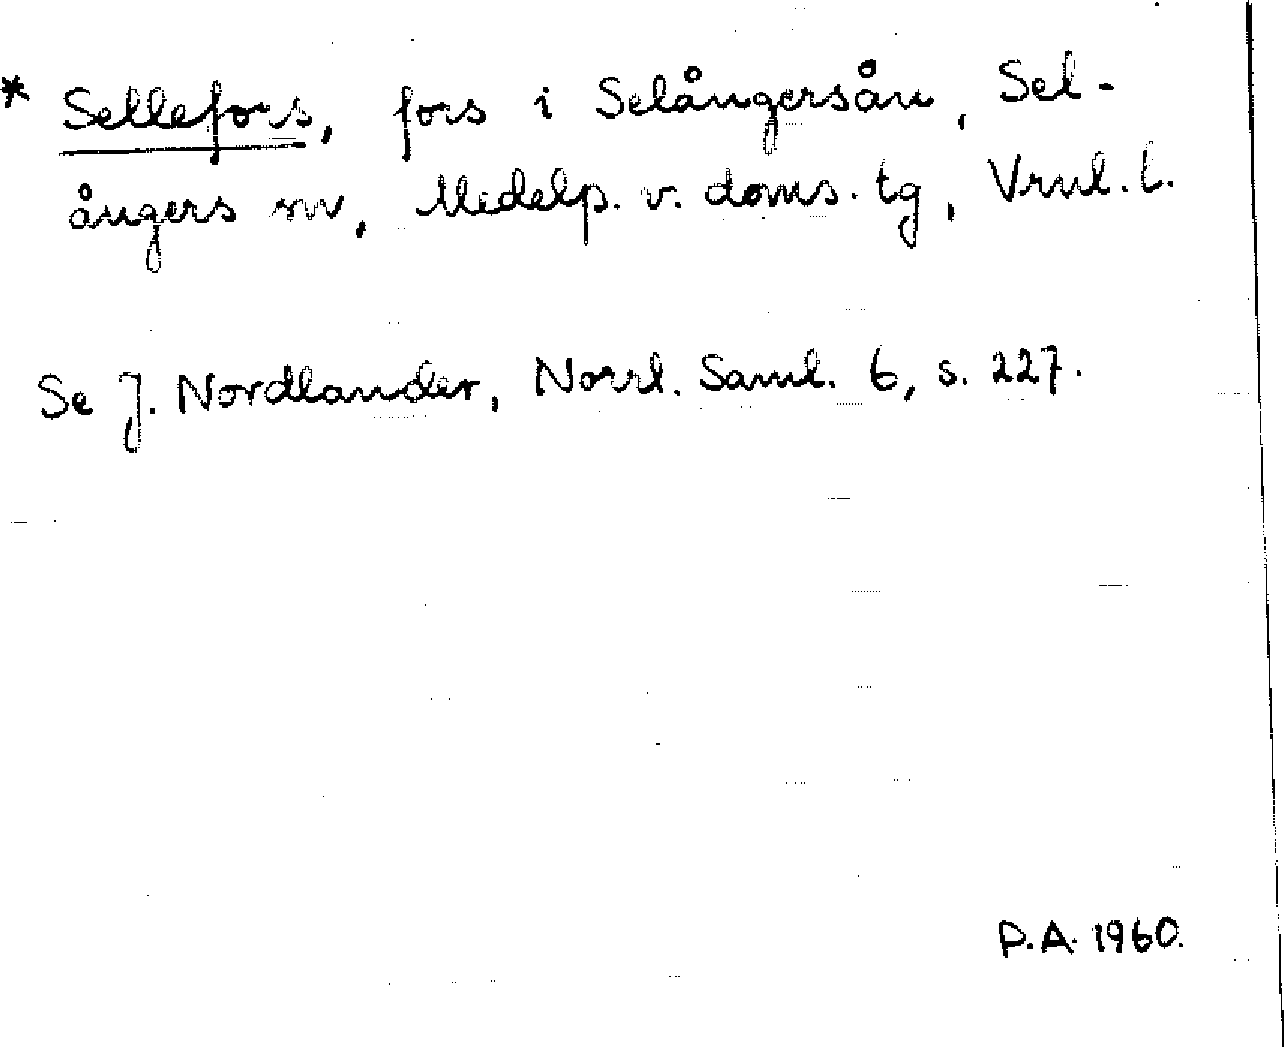 * Sellefors, fors i Selångersån, Sel-
ångers sn, Medelp. v. doms. tg, Vrnl. l.
Se J. Nordlander, Norrl. Saml. 6, s. 227.
P.A. 1960.